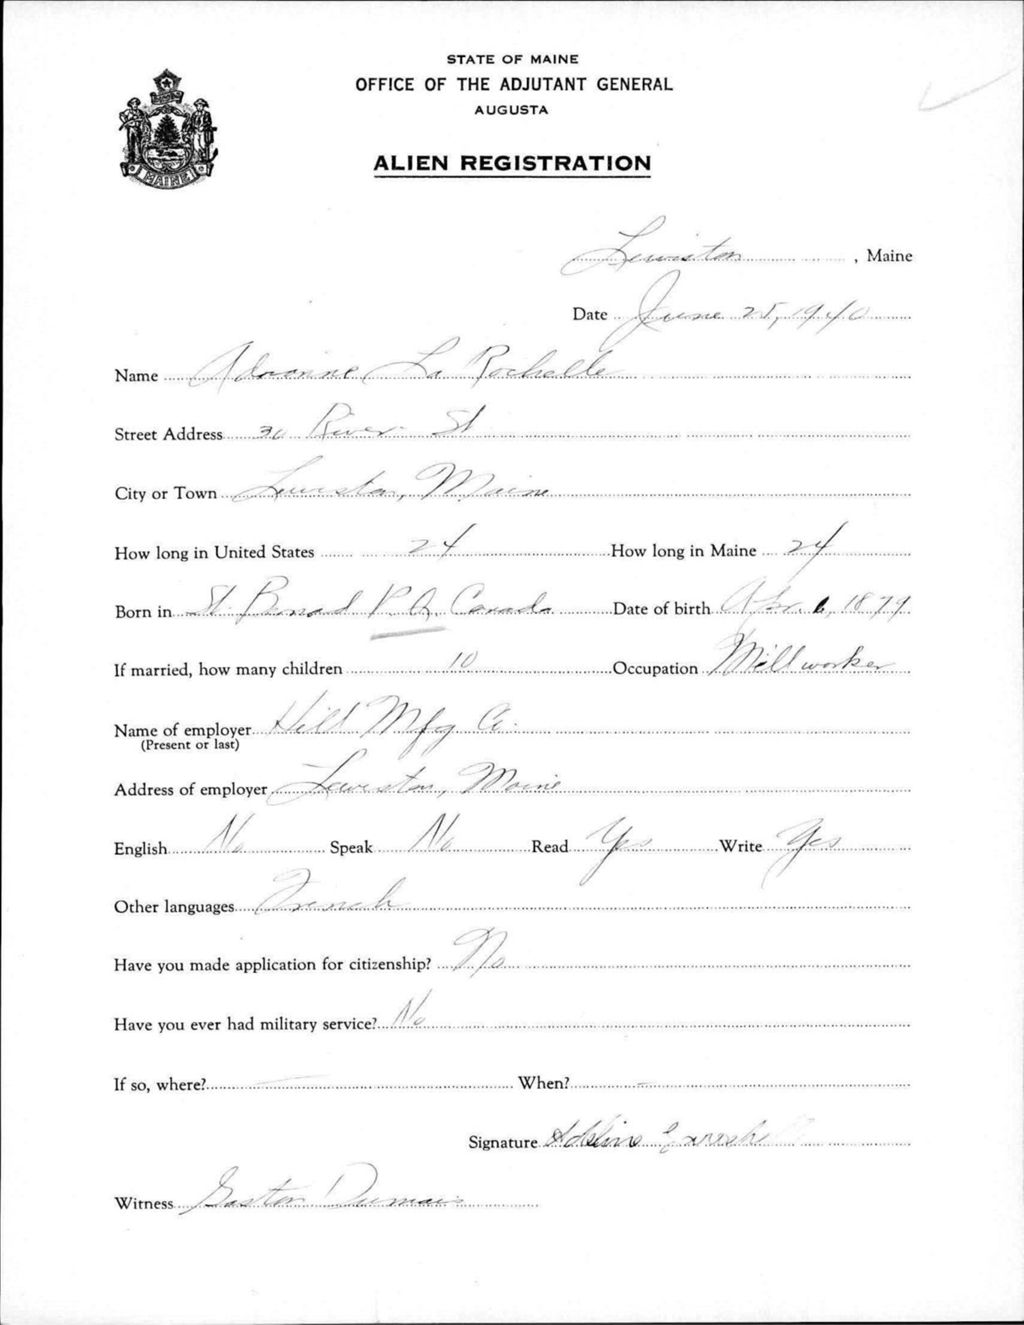 STATE OF MAINE
OFFICE OF THE ADJUTANT GENERAL
AUGUSTA
MAINE
ALIEN REGISTRATION
Lewiston, Maine
Date June 25, 1940
Name La Rochelle
Street Address 30 River St
City or Town Lewiston, Maine
How long in United States 24 How long in Maine 24
Born in St. Benard P.Q. Canada Date of birth Apr. 6, 1879
If married, how many children 10 Occupation Mill worker
Name of employer Hill Mfg Co.
(Present or last)
Address of employer Lewiston, Maine
English No Speak No Read Yes Write Yes
Other languages French
Have you made application for citizenship? No
Have you ever had military service? No
If so, where? — When? —
Signature
Witness Gaston Dumais